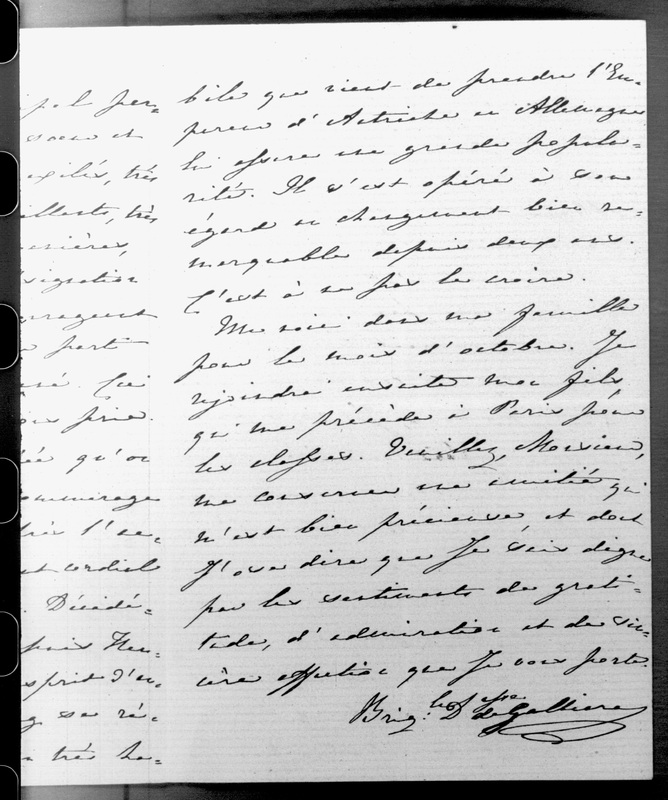 pol per-
et
exilés, très
très
ières,
signation
parti
Ici
prie.
qu'on
l'
cordiale
Décidé-
esprit d'
sa ré-
très ha-
bile que vient de prendre l'Em-
pereur d'Autriche en Allemagne
lui assure une grande popula-
rité. Il s'est opéré à son
égard un changement bien re-
marquable depuis deux ans.
C'est à ne pas le croire.
Me voici dans ma famille
pour le mois d'octobre. Je
rejoindrai ensuite mon fils,
qui me précède à Paris pour
les classes. Veuillez, Monsieur,
me conserver une amitié qui
m'est bien précieuse et dont
J'ose dire que Je suis digne
par les sentiments de grati-
tude, d'admiration et de sin-
cère affection que Je vous porte.
Brig. la Dsse de Galliera